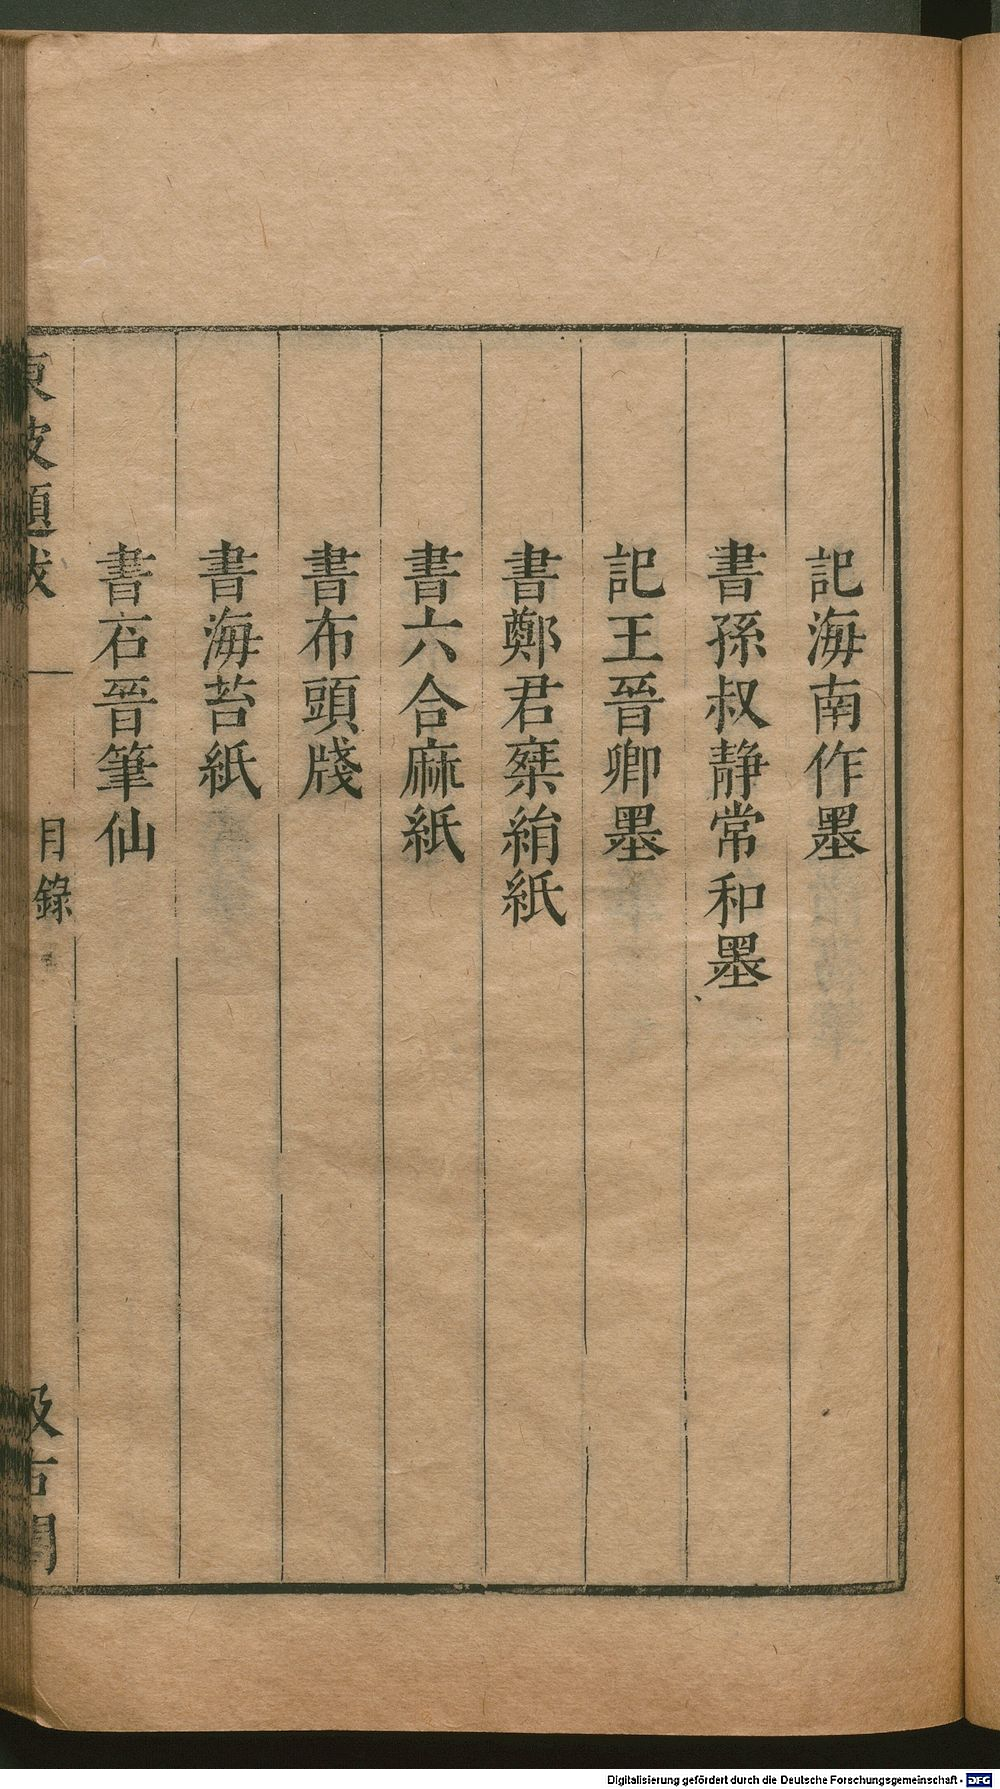 記海南作墨
書孫叔静常和墨
記王晉卿墨
書鄭君椉絹紙
書六合麻紙
書布頭牋
書海苔紙
書石晉筆仙
東坡題跋 一 目錄 汲古閣
Digitalisierung gefördert durch die Deutsche Forschungsgemeinschaft - DFG